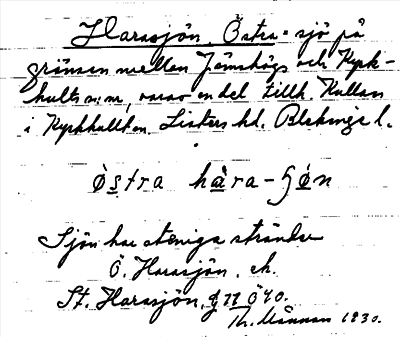 Harasjön, Östra = sjö på
gränsen mellan Jämshögs och Kyrk-
hults snr, varav en del tillh. Kullan
i Kyrkhult sn. Listers hd. Blekinge l.
östra hàra-ʃön
Sjön har steniga stränder
Ö. Harasjön, ek.
St. Harasjön, Ö40.
Th. Månsson 1930.